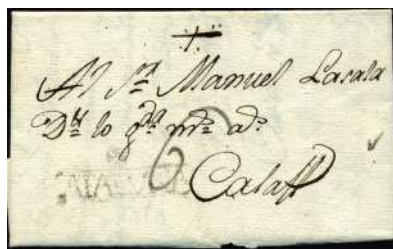 Al S.r Manuel Lasala
D.s lo g.de m.s a.s
6
Calaff